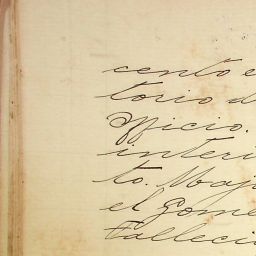 cento e
torio d
Officio.
interi
to. Maj
el Gome
Falleci